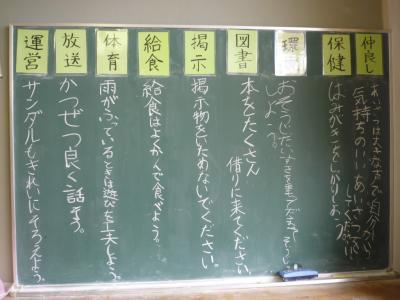 仲良し
あいさつは大きな声で自分から
気持ちのいいあいさつを
してください。
保健
はみがきをしっかりしよう。
環
しよう。
図書
本をたくさん
借りに来てください。
掲示
掲示物をいためないでください。
給食
給食はよくかんで食べよう。
体育
雨がふっているときは遊びを工夫しよう。
放送
かつぜつ良く話そう。
運営
サンダルもきれいにそろえよう。